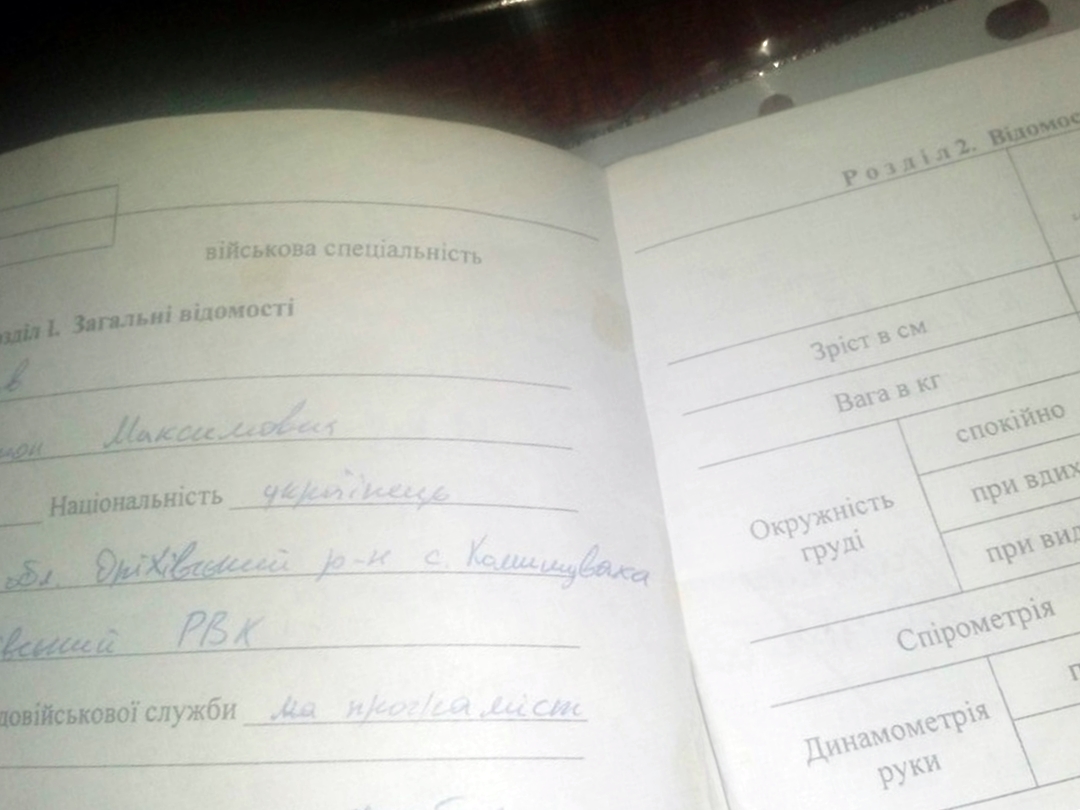 військова спеціальність
зділ 1. Загальні відомості
в
Максимович
Національність українець
обл. Оріхівський р-н с. Комишуваха
вський РВК
довійськової служби программіст
Розділ 2. Відомос
Зріст в см
Вага в кг
Окружність груді
спокійно
при вдих
при вид
Спірометрія
Динамометрія руки